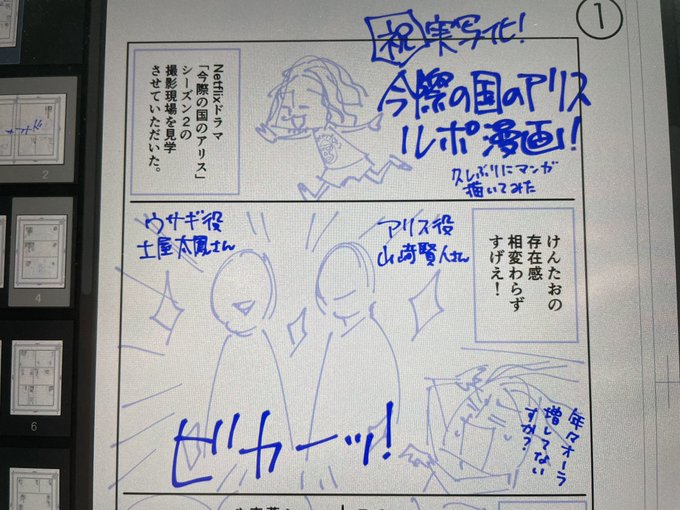 ①
祝 実写化!
今際の国のアリス
ルポ漫画!
久しぶりにマンガ
描いてみた
Netflixドラマ
「今際の国のアリス」
シーズン2の
撮影現場を見学
させていただいた。
けんたおの
存在感
相変わらず
すげえ!
アリス役
山﨑賢人さん
ウサギ役
土屋太鳳さん
ビカーッ!
年々オーラ
増してない
すか?
2
4
6